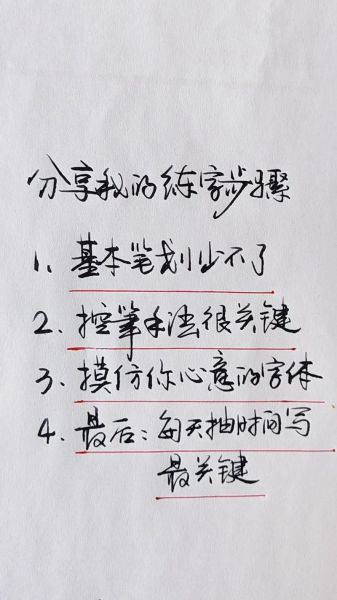 分享我的练字步骤
1、基本笔划少不了
2、控筆手法很关键
3、摸仿你心意的字体
4、最后：每天抽时间写
最关键